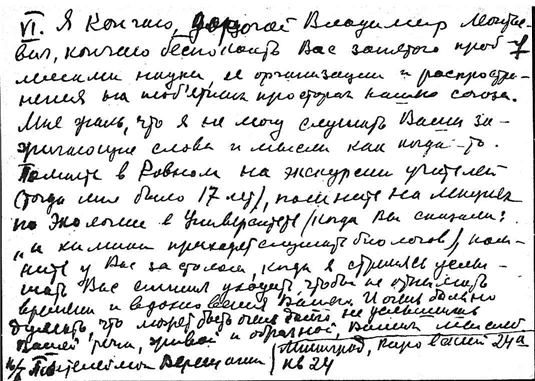 VI. Я кончаю, дорогой Владимир
вич, кончаю беспокоить Вас занятого проб-
лемами науки, ее организации и распростра-
нения на необъятных просторах нашего союза.
Мне жаль, что я не могу слушать Ваши за-
жигающие слова и мысли как когда-то.
Помните в Ровном на экскурсии учителей
(тогда мне было 17 лет), помните на лекциях
по Экологии в Университете (когда Вы сказали:
"и химики приходят слушать биологов), пом-
ните у Вас за столом, когда я стремясь услы-
шать Вас спешил уходить, чтобы не отнимать
времени и вдохновения Вашего. И очень больно
думать, что может быть очень долго не услышишь
Вашей речи, живой и образной, Ваших мыслей
Верещагин / кв 24
24а